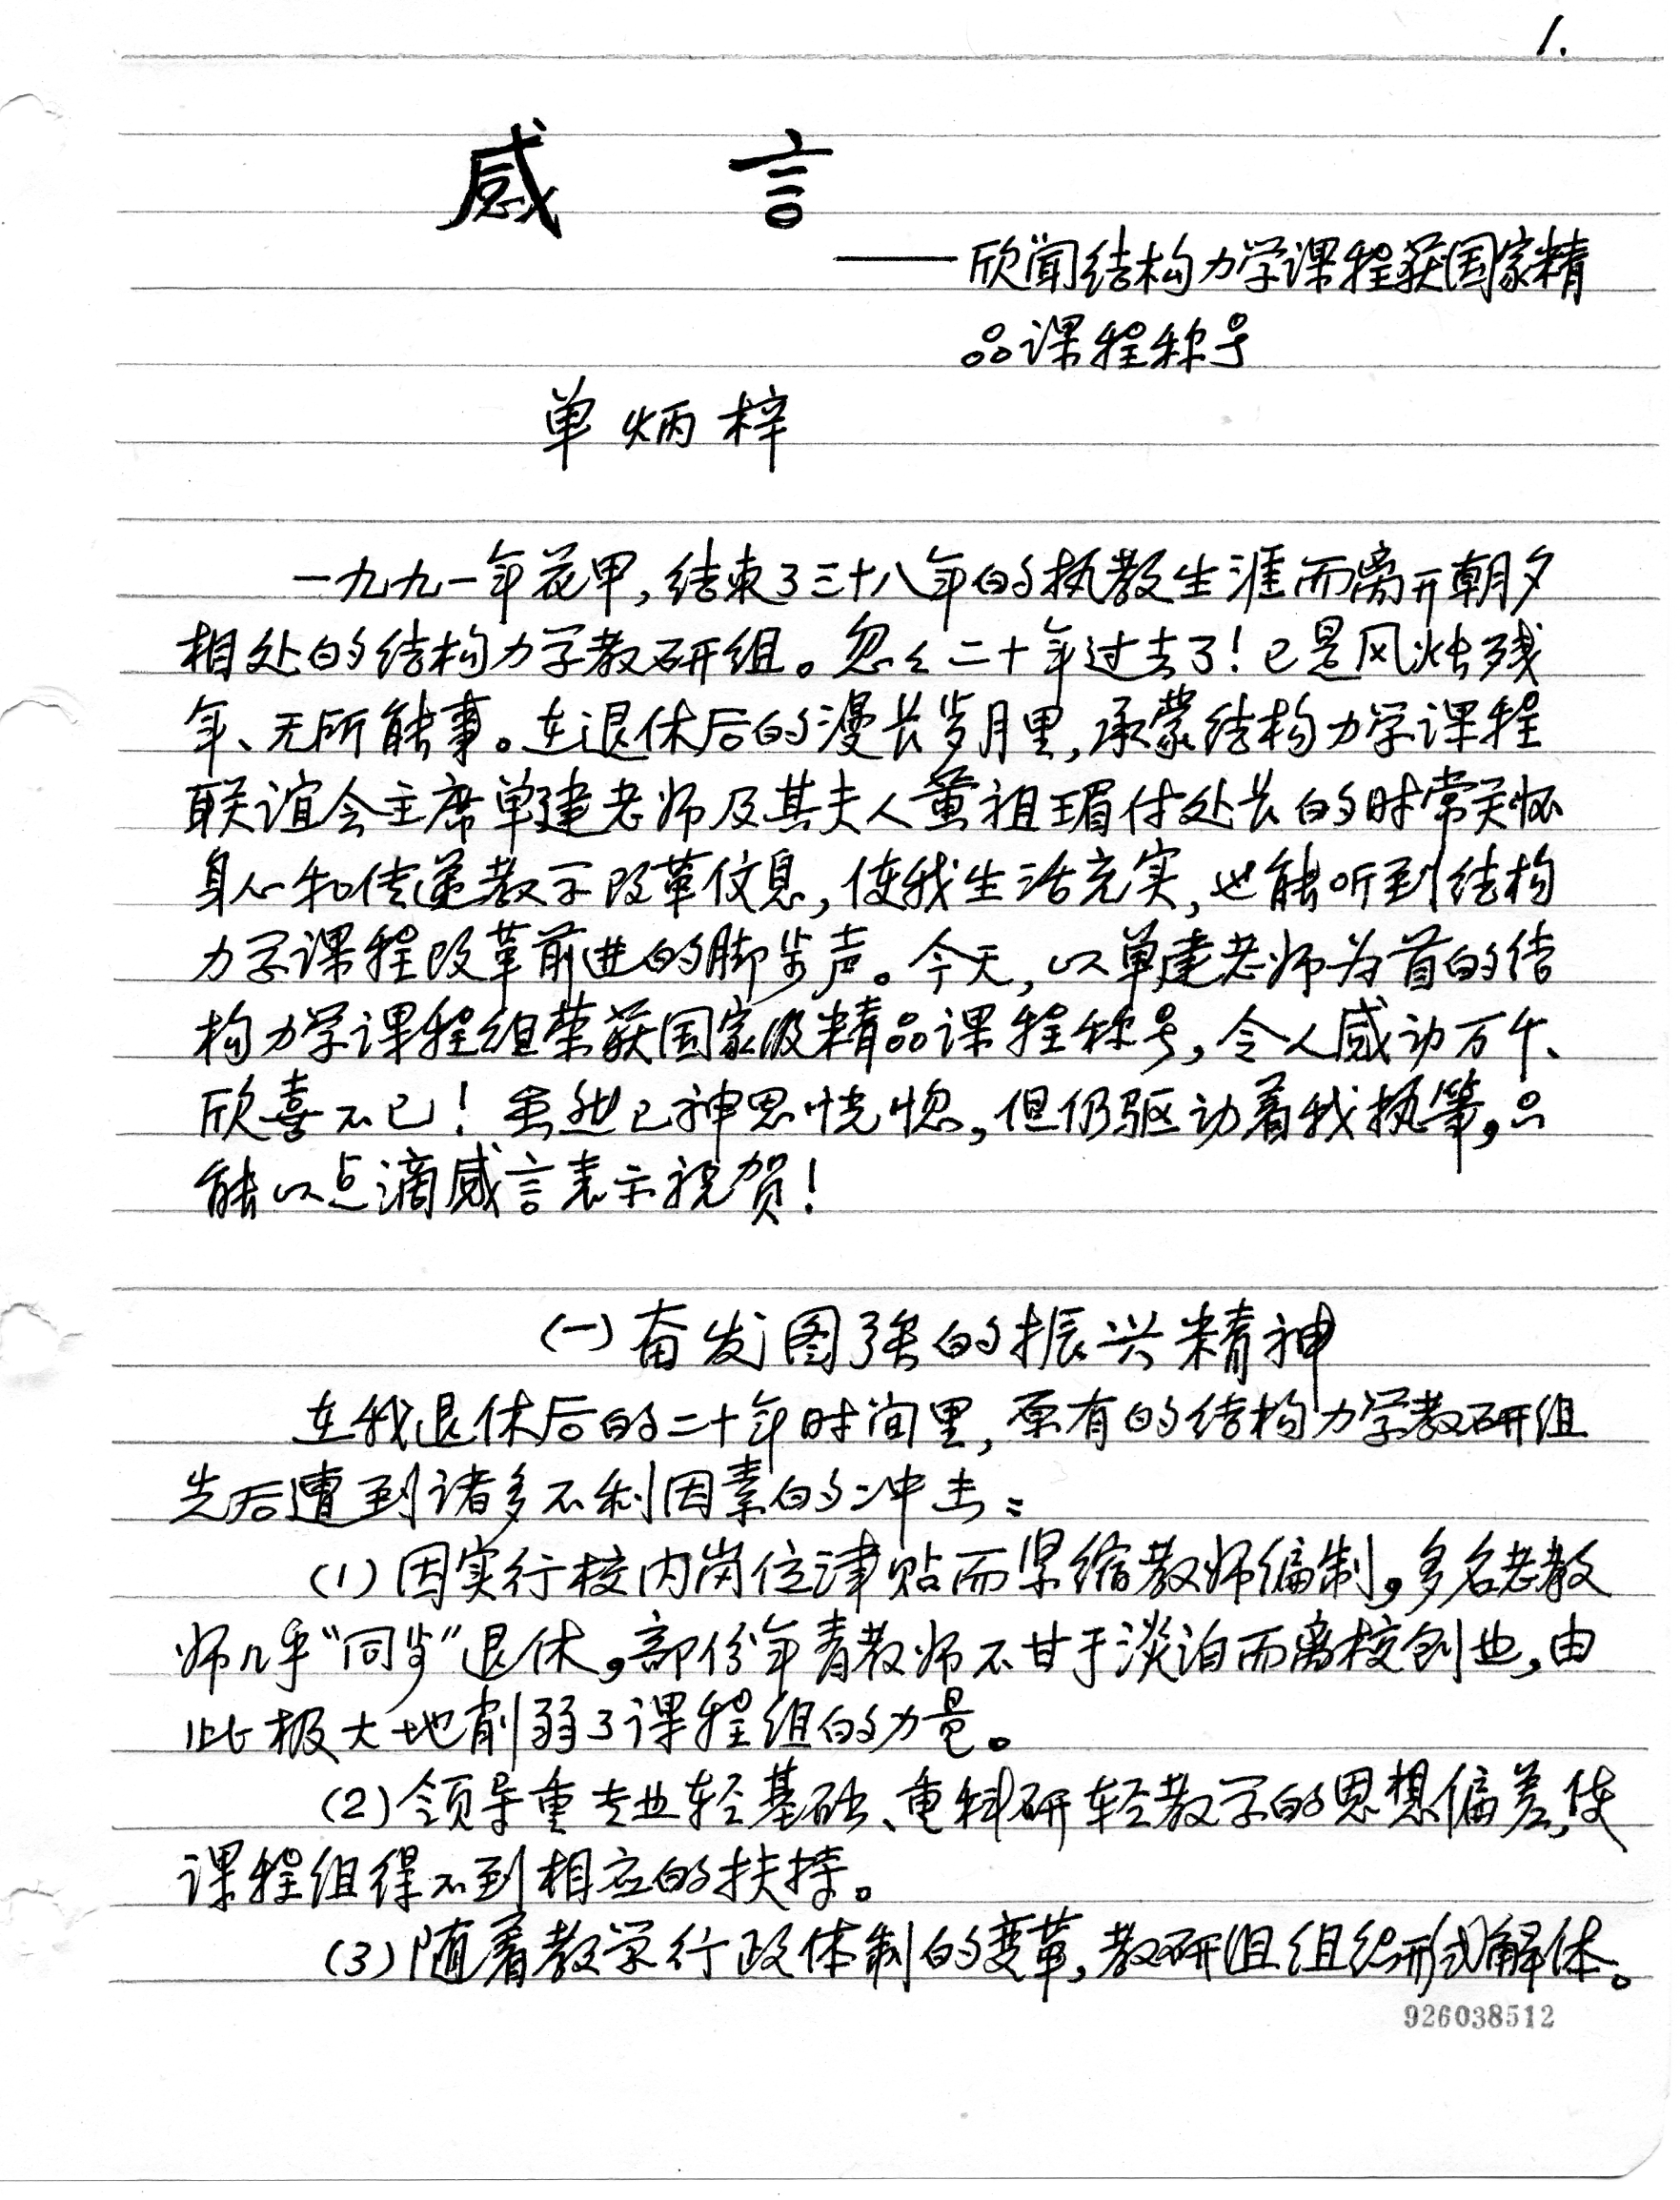 1.
感言
——欣闻结构力学课程获国家精
品课程称号
单炳梓
一九九一年花甲,结束了三十八年的执教生涯而离开朝夕
相处的结构力学教研组。忽々二十年过去了!已是风烛残
年、无所能事。在退休后的漫长岁月里,承蒙结构力学课程
联谊会主席单建老师及其夫人董祖瑂付处长的时常关怀
身心和传递教学改革信息,使我生活充实,也能听到结构
力学课程改革前进的脚步声。今天,以单建老师为首的结
构力学课程组荣获国家级精品课程称号,令人感动万千、
欣喜不已!虽然已神思恍惚,但仍驱动着我执笔,只
能以点滴感言表示祝贺!
(一)奋发图强的振兴精神
在我退休后的二十年时间里,原有的结构力学教研组
先后遭到诸多不利因素的冲击:
(1)因实行校内岗位津贴而紧缩教师编制,多名老教
师几乎“同步”退休,部份年青教师不甘于淡泊而离校创业,由
此极大地削弱了课程组的力量。
(2)领导重专业轻基础、重科研轻教学的思想偏差,使
课程组得不到相应的扶持。
(3)随着教学行政体制的变革,教研组组织形式解体。
926038512